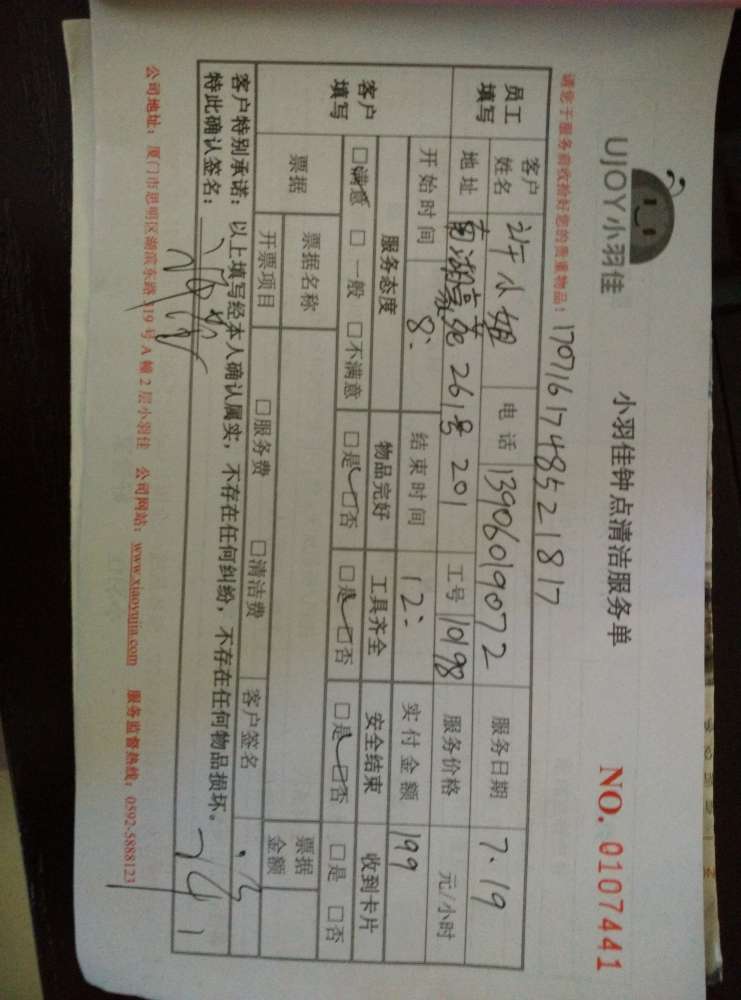 UJOY小羽佳
小羽佳钟点清洁服务单
NO. 0107441
请您于服务前收拾好您的贵重物品！
1707161748521817
员工填写
客户姓名 许小姐 电话 13906019072 服务日期 7.19
地址 南湖豪苑26号201 工号 10198 服务价格 元/小时
开始时间 8: 结束时间 12: 实付金额 199
客户填写
服务态度 物品完好 工具齐全 安全结束 收到卡片
□满意 □一般 □不满意 □是 □否 □是 □否 □是 □否 □是 □否
票据 票据名称 票据金额
开票项目 □服务费 □清洁费 客户签名
客户特别承诺：以上填写经本人确认属实，不存在任何纠纷，不存在任何物品损坏。
特此确认签名：
公司地址：厦门市思明区湖滨东路319号A幢2层小羽佳 公司网站：www.xiaoyujia.com 服务监督热线：0592-5888123